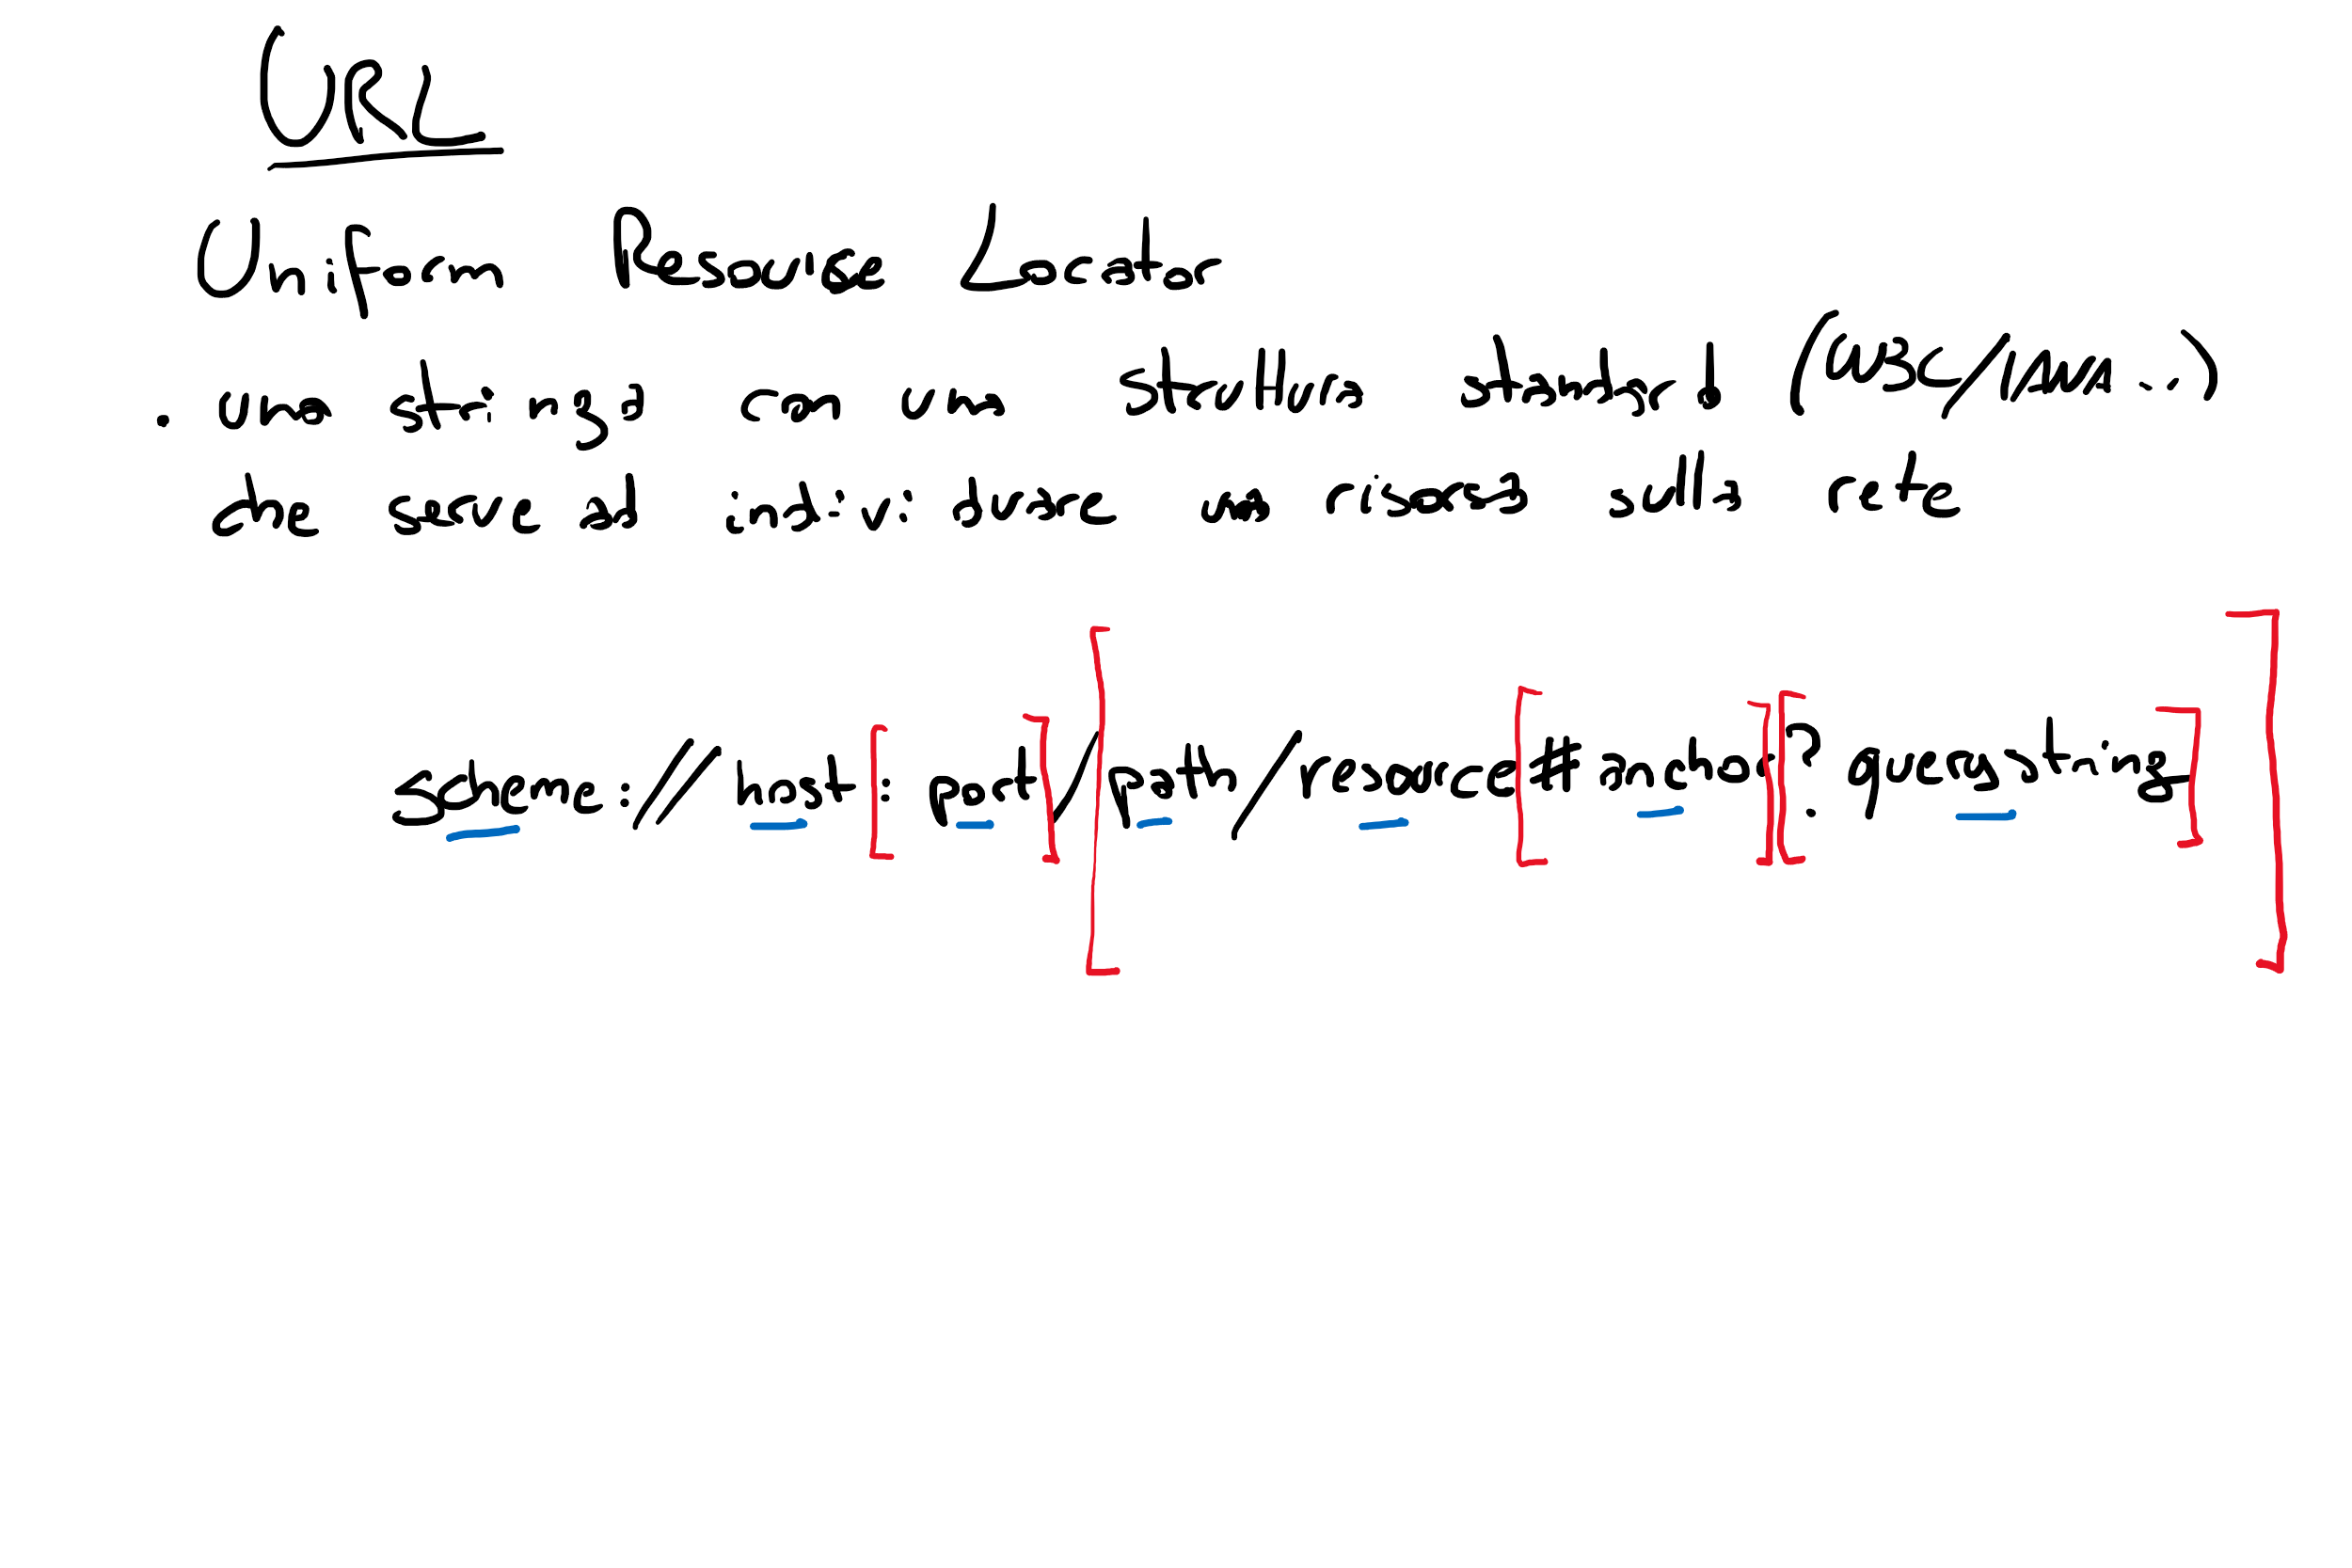 URL
Uniform Resource Locator
. una stringa con una struttura standard (W3C/WWW...)
che serve ad individuare una risorsa sulla rete
scheme://host[:port]/[path/resource[#anchor][?querystring]]